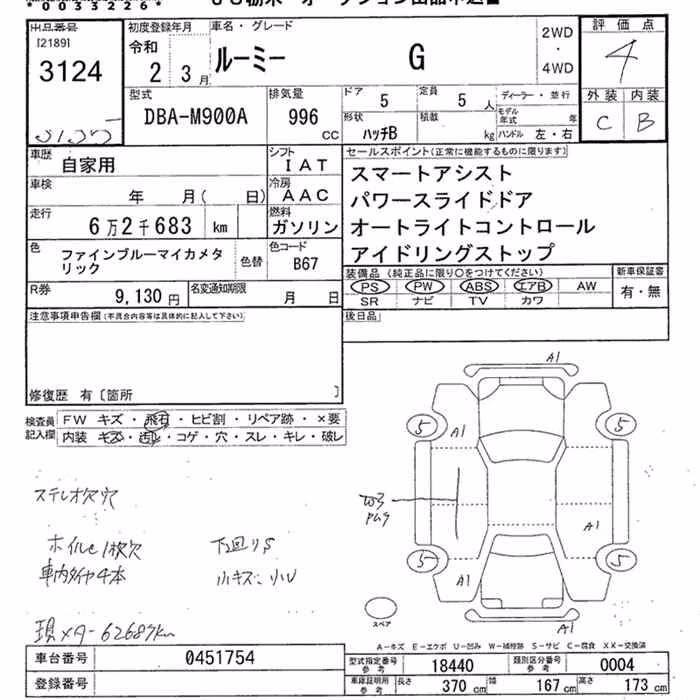 *0033226*
出品番号 初度登録年月 車名・グレード 2WD ・ 4WD 評価点
[2189] 令和 ルーミー G 4
3124 2年 3月 外装 内装
型式 排気量 ドア 定員 ディーラー・並行 C B
DBA-M900A 996 CC 5 5人 モデル年式 年
形状 積載
ハッチB kg ハンドル 左・右
車歴 自家用 シフト IAT セールスポイント(正常に機能するものに限ります)
車検 年 月( 日) 冷房 AAC スマートアシスト
走行 6万2千683 km 燃料 ガソリン パワースライドドア
オートライトコントロール
アイドリングストップ
色 ファインブルーマイカメタリック 色替 色コード B67
装備品(純正品に限り○をつけてください) 新車保証書
PS PW ABS エアB AW 有・無
SR ナビ TV カワ
R券 9,130円 名変通知期限 月 日
注意事項申告欄(不具合内容等は具体的に記入して下さい) 後日品
修復歴 有〔箇所 〕
検査員記入欄 FW キズ・飛石・ヒビ割・リペア跡・×要
内装 キズ・汚れ・コゲ・穴・スレ・キレ・破レ
A1
5 A1 5
ステレオ欠穴
W3
A1
ホイルc1枚欠 下廻りS
車内タイヤ4本 小キズ、小U
5 A1 5
スペア
A1
現メター62687km
A-キズ E-エクボ U-凹み W-補修跡 S-サビ C-腐食 XX-交換済
車台番号 0451754 型式指定番号 参考 18440 類別区分番号 参考 0004
登録番号 車庫証明用 参考 長さ 370cm 幅 167cm 高さ 173cm